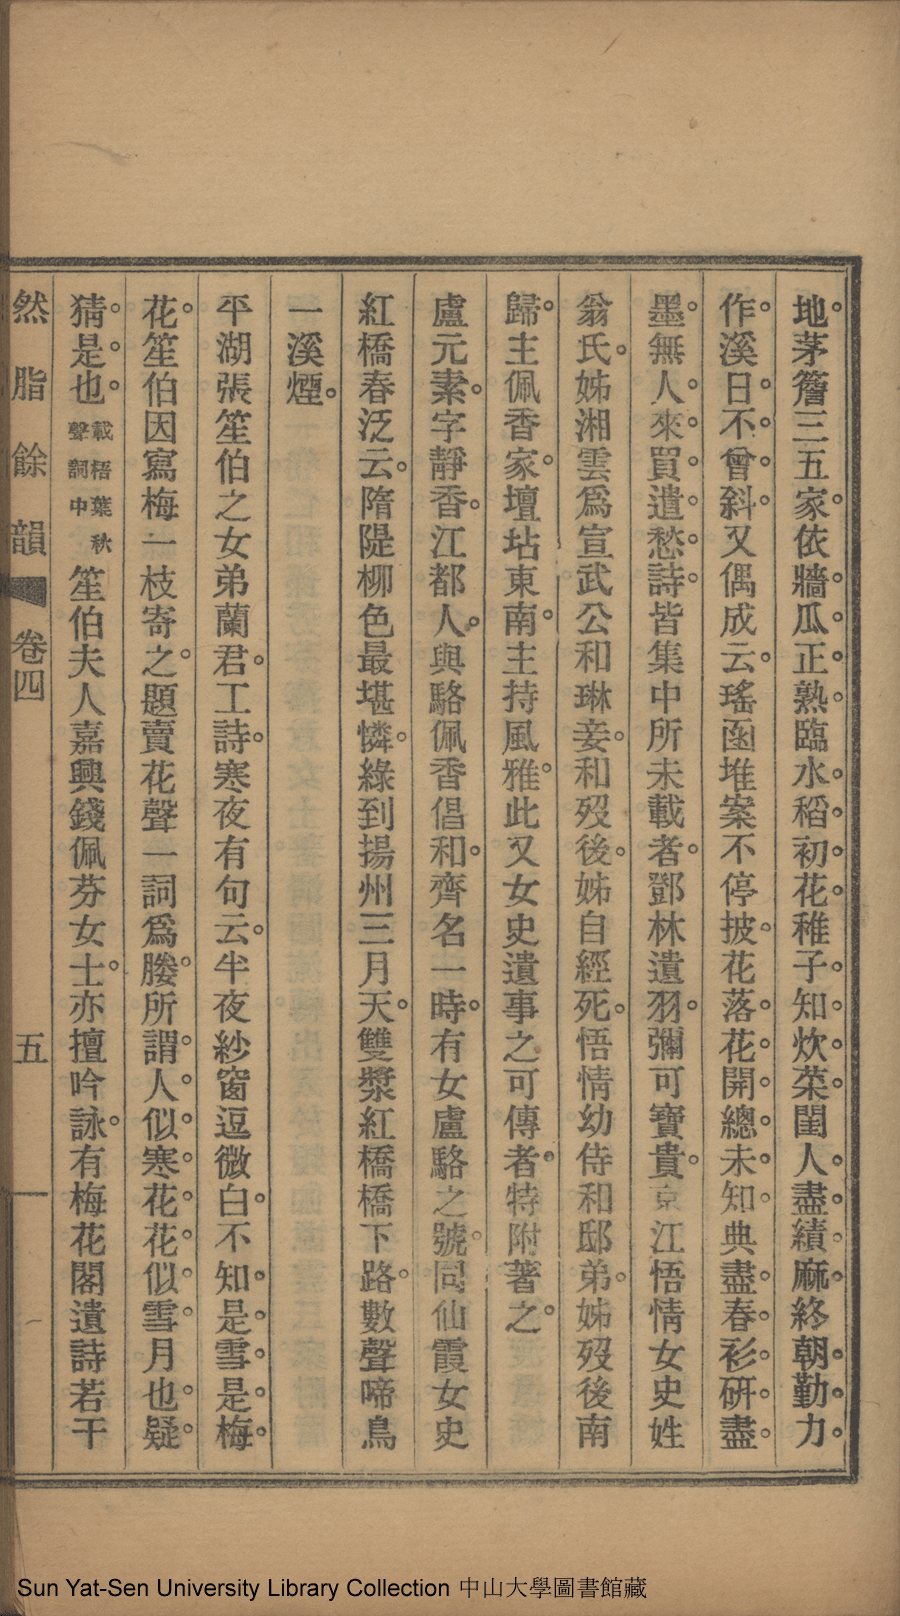 地茅簷三五家依牆瓜正熟臨水稻初花稚子知炊菜閨人盡績麻終朝勤力
作溪日不曾斜又偶成云瑤函堆案不停披花落花開總未知典盡春衫硏盡
墨無人來買遣愁詩皆集中所未載者鄧林遺羽彌可寶貴京江悟情女史姓
翁氏姊湘雲爲宣武公和琳妾和歿後姊自經死悟情幼侍和邸弟姊歿後南
歸主佩香家壇坫東南主持風雅此又女史遺事之可傳者特附著之
盧元素字靜香江都人與駱佩香倡和齊名一時有女盧駱之號同仙霞女史
紅橋春泛云隋隄柳色最堪憐綠到揚州三月天雙槳紅橋橋下路數聲啼鳥
一溪煙
平湖張笙伯之女弟蘭君工詩寒夜有句云半夜紗窗逗微白不知是雪是梅
花笙伯因寫梅一枝寄之題賣花聲一詞爲媵所謂人似寒花花似雪月也疑
猜是也載梧葉秋聲詞中笙伯夫人嘉興錢佩芬女士亦擅吟詠有梅花閣遺詩若干
然脂餘韻 卷四 五
Sun Yat-Sen University Library Collection 中山大學圖書館藏